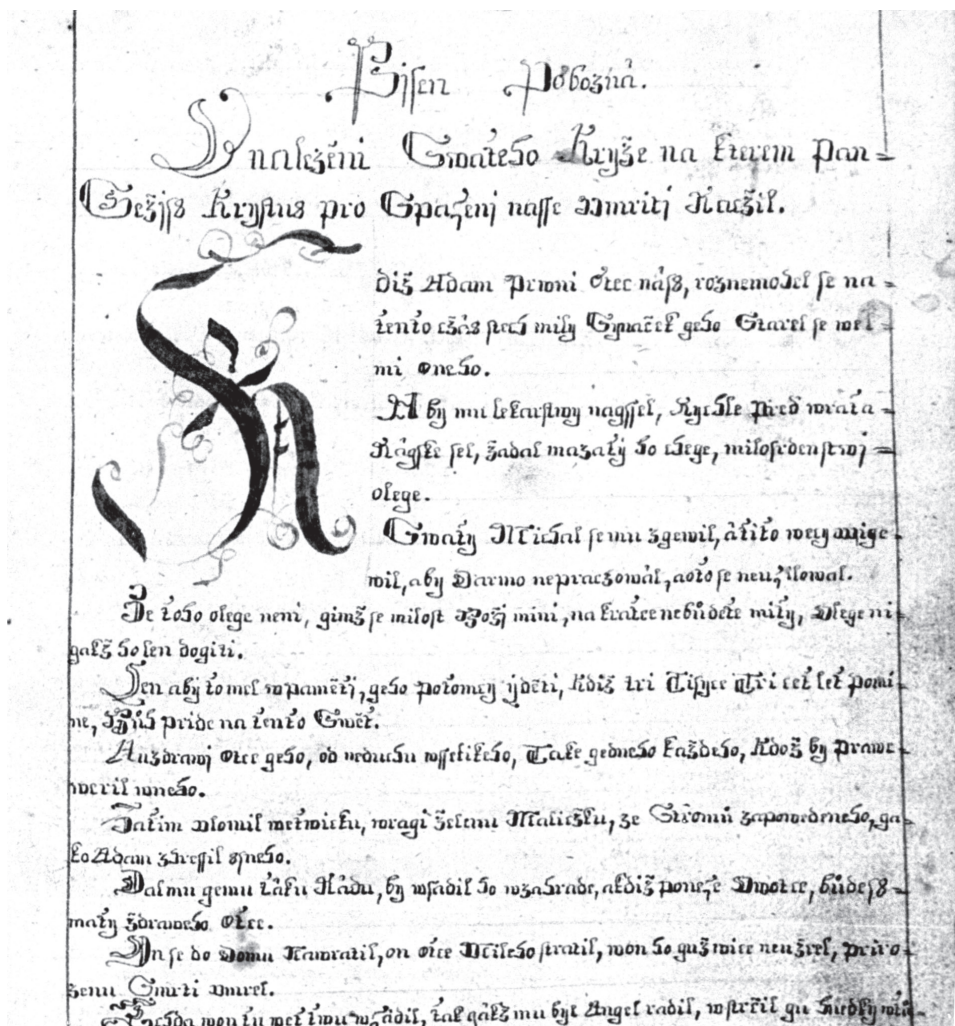 Pjsen Pobozná.
O nalezění Swateho Kryže na kterem pan=
Gežjss Krystus pro Spasenj nasse vmřitj Raczil.
Kdiž Adam prwni Otec náss, roznemohel se na=
tento czás stechmily Synaček geho Staral se wel=
mi oneho.
A by mu lekarstwy nagssel, Rychle přėd wrata=
Rágske sel, žadal mazaty ho olege, milosrdenstwj=
olege.
Swaty Michal se mu zgewil, átito wecy
wil, aby Darmo nepraczowál, aoto se neusilowal.
Že toho olege neni, gimž se milost Božj mini, na kratce nebůdete mity, Olege ni=
gakž ho len dogiti.
Len aby to mel wpamětj, geho potomcy ý děti, kdiž tri Tisyce Tri cet let pomi=
ne, Bůh pride na tento Swět.
A uzdrawj otce geho, od neduhu wsselikeho, Take gedneho každeho, kdož by prawe=
weril wneho.
Zatim vlomil wetwicku, wragi zelenu Maliczku, ze Stromů zapowedeneho, ga=
ko Adam zhressil zneho.
Dal mu gemu táku Rádu, by wsadil ho wzahrade, akdiž ponese Owotce, bůdess=
maty zdraweho Otce.
On se do Domu Nawratil, on otce Mileho stratil, won ho guž wice neuzrel, priro=
zenu Smrti vmrel.
Tehda won tu wetwu wsádil, tak gákž mu byl Angel radil, wstrčil gu